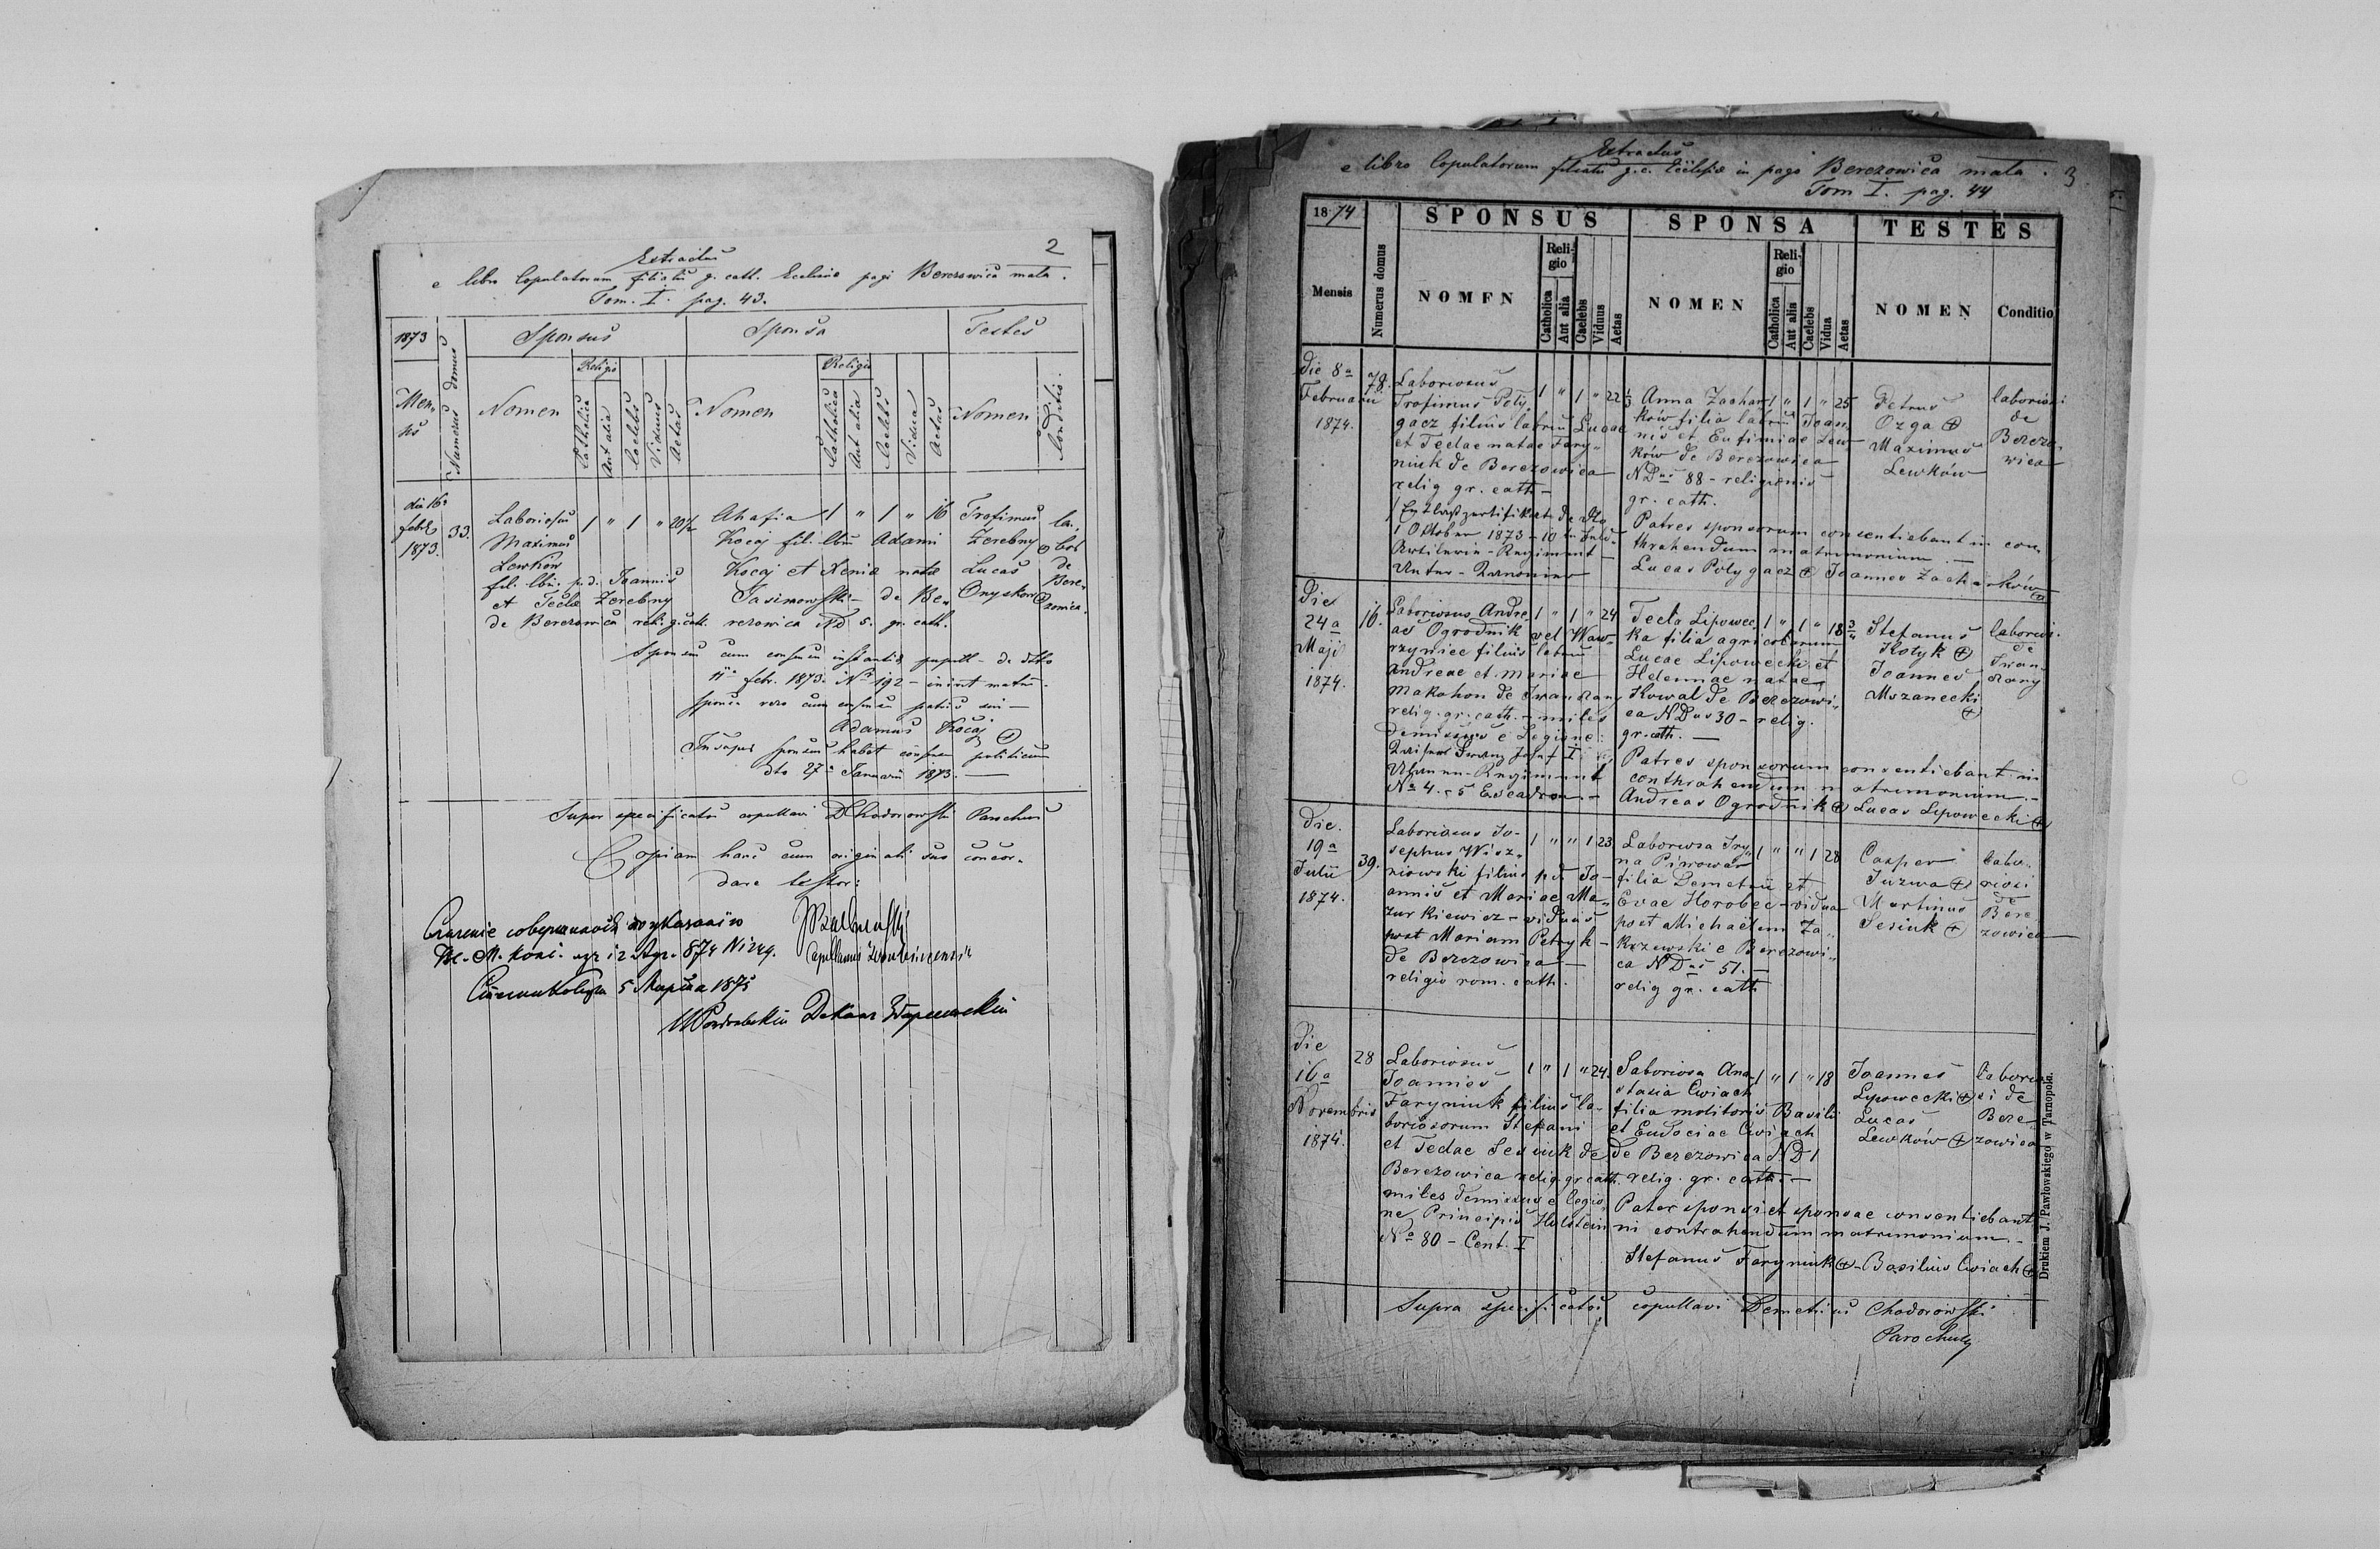 2
Extractus
e libro Copulatorum filialis g. cath. Ecclesiae pagi Berezowica mała.
Tom. I. pag. 43.
1873
Sponsus
Sponsa
Testes
Mensis
Numerus domus
Nomen
Religio
Catholica
Aut alia
Coelebs
Viduus
Aetas
Nomen
Religio
Catholica
Aut alia
Coelebs
Vidua
Aetas
Nomen
Conditio.
die 16a
febr.
1873.
33.
Laboriosus
Maximus
Lewków
fil. lbi. p.d. Joannis
et Teclae Zerebny
de Berezowica reli. g. cath.
1 " 1 " 20½
Ahafia
Kocaj fil. lbi Adami
Kocaj et Xeniae natae
Jasinowski - de Be-
rezowica ND 5. gr. cath.
1 " 1 " 16
Trofimus
Zerebny
Lucas
Onyskow
la-
bor
de
Bere-
zowica.
Sponsus cum consensu instantiae pupill - de dtto
11a febr. 1873. No 192 - iniit matr.
sponsa vero cum consensu patris sui —
Adamus Kocaj
Insuper sponsus habet consensum politicum
dto 27a Januarii 1873. —
Super specificatos copullavi DChodorowski Parochus
Copiam hanc cum originali suo concor-
dare testor:
5 Марта 1875
3
Extractus
e libro Copulatorum filialis g. c. Ecclesiae in pago Berezowica mała.
Tom I. pag. 44
1874
SPONSUS
SPONSA
TESTES
Mensis
Numerus domus
NOMEN
Reli-
gio
Catholica
Aut alia
Caelebs
Viduus
Aetas
NOMEN
Reli-
gio
Catholica
Aut alia
Caelebs
Vidua
Aetas
NOMEN
Conditio
Die 8a
Februarii
1874.
78.
Laboriosus
Trofimus Poly-
gacz filius labrum Lucae
et Teclae natae Fary-
niuk de Berezowica
relig gr. cath -
1 Oktober 1873 - 10 Feld-
Artilerie - Regiment -
Unter - Kanonier
1 " 1 " 22⅓
Anna Zachar-
ków filia labrum Joan-
nis et Eufimiae Lew-
ków de Berezowica
NDus 88 - religionis
gr. cath.
1 " 1 " 25
Petrus
Ozga
Maximus
Lewków
laboriosi
de
Berezo-
wica
Patres sponsorum consentiebant in con-
thrahendum matrimonium —
Lucas Polygacz Joannes Zacharków
Die
24a
Maji
1874.
16.
Laboriosus Andre-
as Ogrodnik vel Waw-
rzyniec filius labrum
Andreae et Mariae
Makohon de Iwanczany
relig. gr. cath. - miles
demissus e Legione:
Kaiser Franz Josef I
Uhlanen - Regiment
No 4. - 5 Escadron. -
1 " 1 " 24
Tecla Lipowec-
ka filia agricolarum
Lucae Lipowecki et
Helennae natae
Kowal de Berezowi-
ca NDus 30 - relig.
gr. cath. —
1 " 1 " 18¾
Stefanus
Kotyk
Joannes
Mszanecki
laboriosi
de
Iwan-
czany
Patres sponsorum consentiebant in
conthrahendum matrimonium. -
Andreas Ogrodnik Lucas Lipowecki
Die.
19a
Julii
1874.
39.
Laboriosus Jo-
sephus Wisz-
niowski filius p.d. Jo-
annis et Mariae Ma-
zurkiewicz - viduus
post Mariam Petryk -
de Berezowica —
religio rom. cath.
1 " " 1 23
Laboriosa Iry-
na Piwowar
filia Demetrii et
Evae Horobec - vidua
post Michaëlem Za-
krzewski e Berezowi-
ca NDus 51. —
relig gr. cath
1 " " 1 28
Casper
Juzwa
Martinus
Sesiuk
labo-
riosi
de
Bere-
zowica
Die
16a
Novembris
1874.
28
Laboriosus
Joannes
Faryniuk filius la-
boriosorum Stefani
et Teclae Sesiuk de
Berezowica relig. gr cath.
miles demissus e legio-
ne Principis Holstein
No 80 - Cent. I
1 " 1 " 24.
Laboriosa Ana-
stasia Cwiach
filia molitoris Basilii
et Eudociae Cwiach
de Berezowica ND 1
relig. gr. cath. —
1 " 1 " 18
Joannes
Lipowecki
Lucas
Lewków
laborio-
si de
Bere-
zowica
Pater sponsi et sponsae consentiebant
in contrahendum matrimonium. -
Stefanus Faryniuk - Basilius Cwiach
Supra specificatos copullavi Demetrius Chodorowski
Parochus
Drukiem J. Pawłowskiego w Tarnopolu.